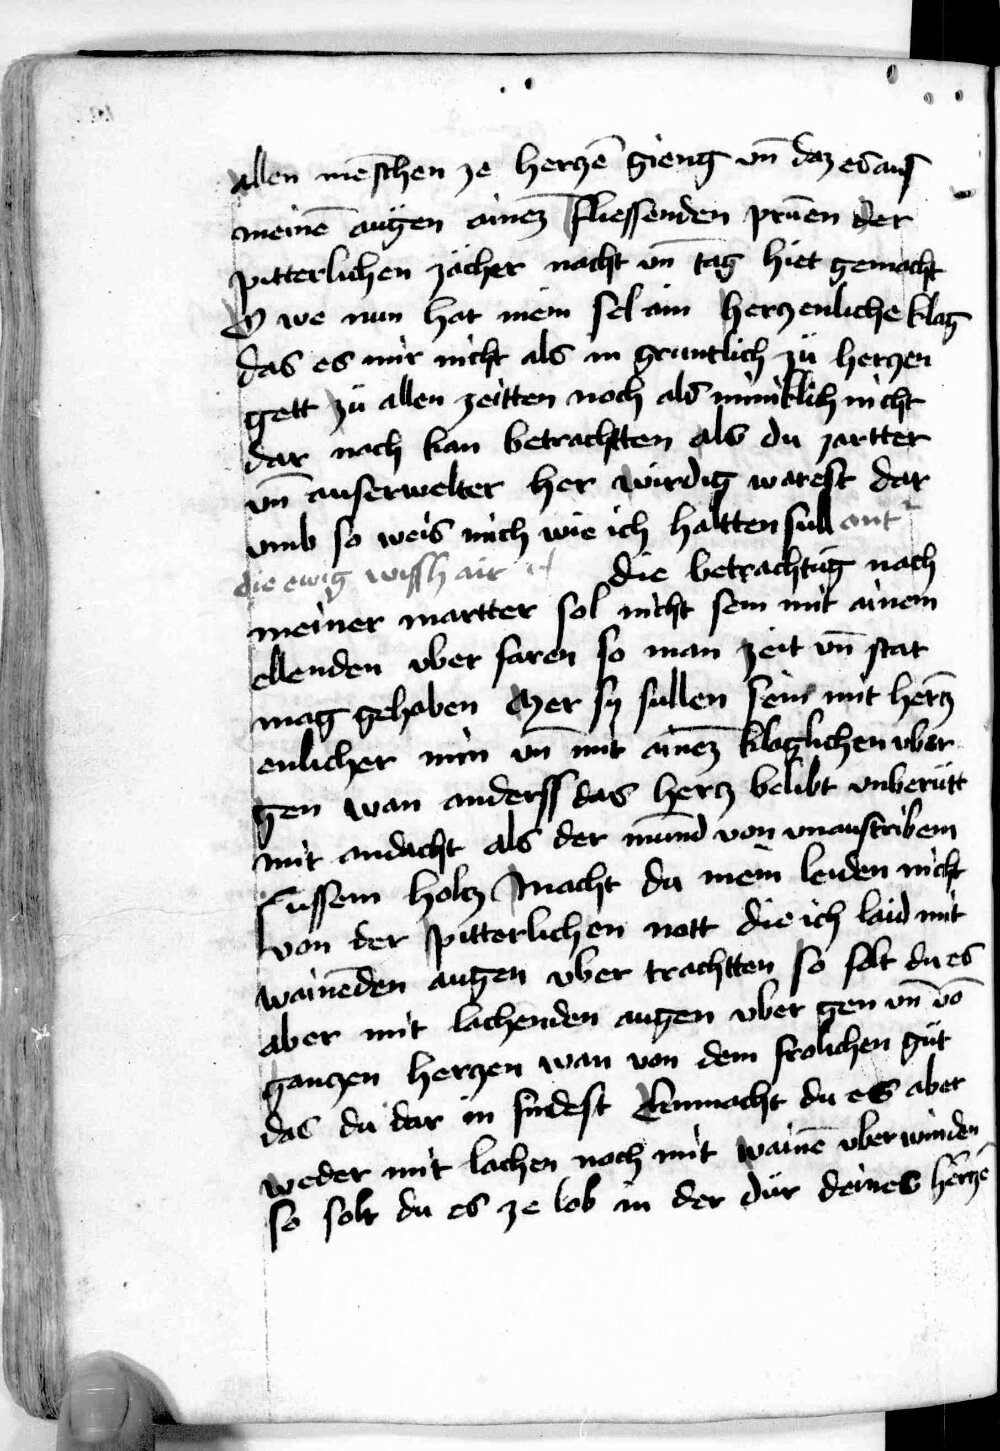 allen mēschen ze herczē gieng vn̄ daz es aus
meinē augen ainez fliessenden prūen der
pitterlichen zächer nacht vn̄ tag hiet gemacht
O we nun hat mein sel ain herczenliche klag
das es mir nicht als in gruntlich zü herczen
gett zü allen zeitten noch als miniklich nicht
dar nach kan betrachtten als du zartter
vn̄ auserwelter her wirdig warest dar
vmb so weis mich wie ich haltten sull ant
die ewig wissh air die betrachtūg nach
meiner martter sol nicht sein mit ainem
ellenden vber faren so man zeit vn̄ stat
mag gehaben Mer sy sullen sein mit hercz
enlicher min vn̄ mit ainez klaglichen vber
gen wan anderss das hercz belibt vnberütt
mit andacht als der mund von vnaustribem
süssem holcz Macht du mein leiden nicht
von der pitterlichen nott die ich laid mit
wainēden augen vber trachtten so solt du es
aber mit lachenden augen vber gen vn̄ vō
ganczen herczen wan von dem frolichen güt
das du dar in findest Uenmacht du es aber
weder mit lachen noch mit wainē vber winden
so solt du es ze lob in der dür deines herczē